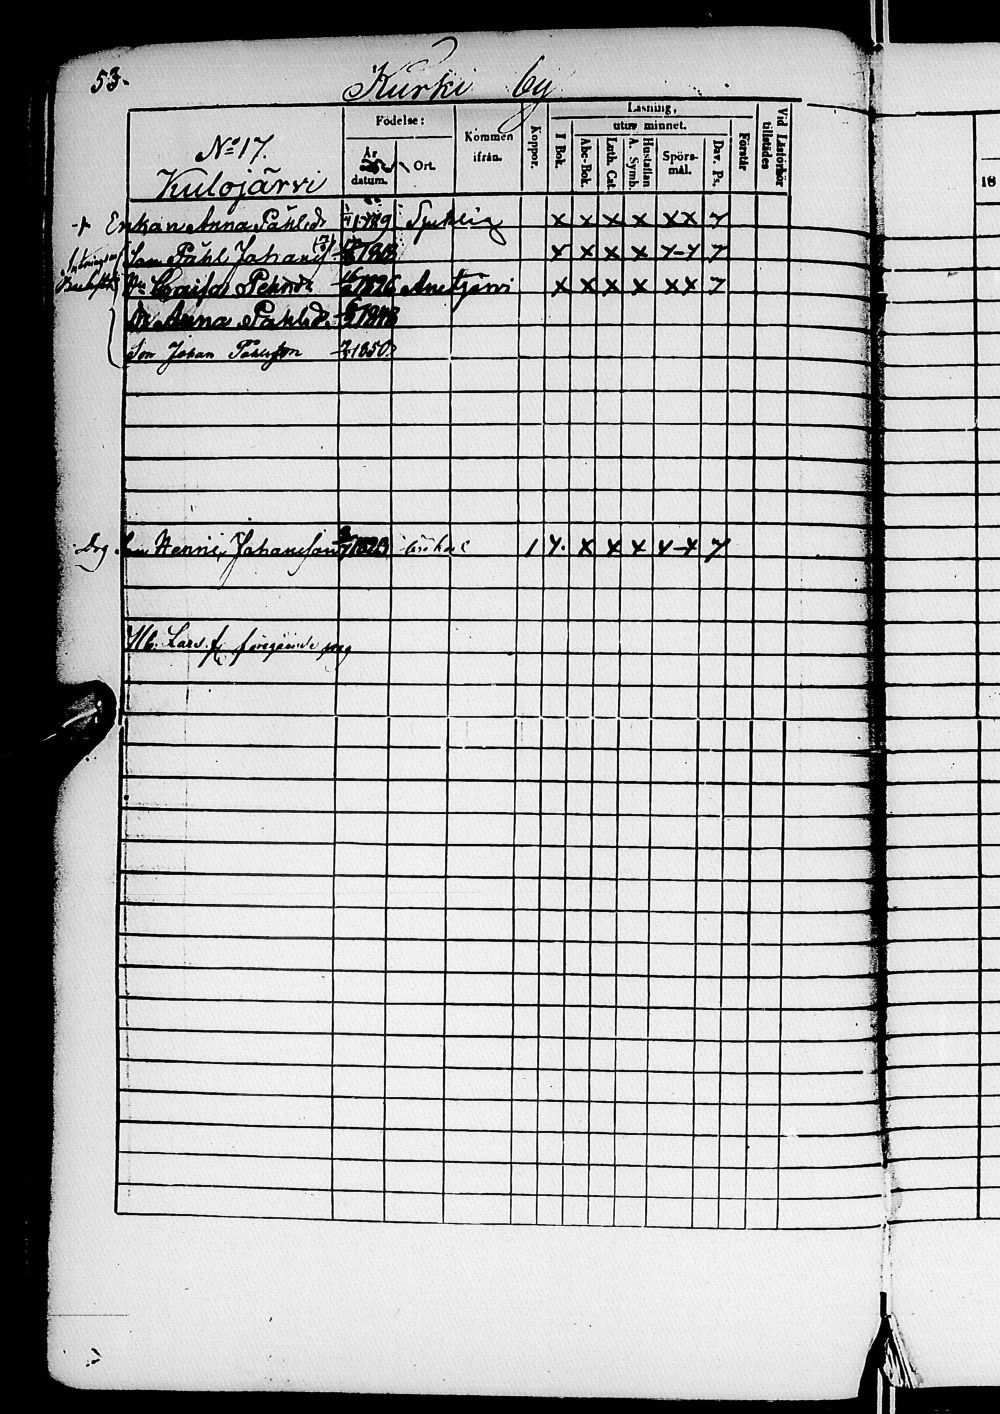 53.
Kurki by
No 17.
Kulojärvi
Födelse:
År
datum.
Ort.
Kommen
ifrån.
Koppor.
Läsning,
utur minnet.
I Bok.
Abc-Bok.
Luth. Cat.
A. Symb.
Hustaflan
Spörs-
mål.
Dav. Ps.
Förstår
Vid Läsförhör
tillstädes
18
Enkan Anna Påhlsdr 1789 x x x x x x 7
Son Påhl Johans x x x x 7
Hu Caisa Pehrsdr 1826 x x x x x x 7
Dr Anna Påhlsd. 1848
Son Johan Påhlsson 1850
Son Henric Johansson 1823 1 x x x 7
Nb. Lars föregående pag